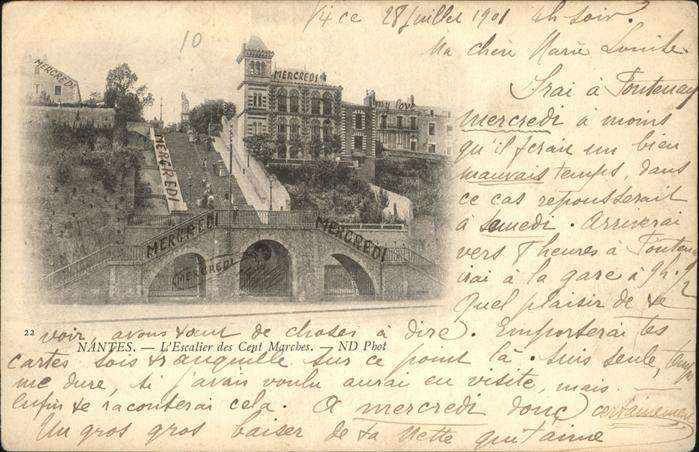 10
V/ce 28 juillet 1901 4h soir.
Ma chère Marie Louise.
J'irai à Fontenay
mercredi à moins
qu'il ferait un bien
mauvais temps, dans
ce cas repousserait
à samedi. Arriverai
vers 7 heures à Fontenay
irai à la gare à 9h.
Quel plaisir de te
voir, avons tant de choses à dire. Emporterai tes
cartes sois tranquille sur ce point là. Suis seule,
me dure, si j'avais voulu aurai en visite, mais
enfin te raconterai cela. A mercredi donc certainement
Un gros gros baiser de ta Nette qui t'aime
MERCREDI
MERCREDI
MERCREDI
MERCREDI
MERCREDI
MERCREDI
MERCREDI
22
NANTES. — L'Escalier des Cent Marches. — ND Phot